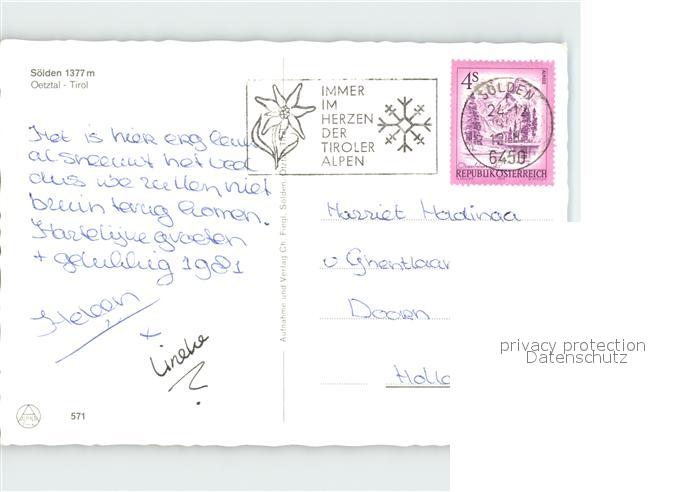 Sölden 1377 m
Oetztal - Tirol
IMMER
IM
HERZEN
DER
TIROLER
ALPEN
4s
SÖLDEN
6450
REPUBLIK ÖSTERREICH
Het is hier erg leuk
al sneeuwt het wel
dus we zullen niet
bruin terug komen.
Hartelijke groeten
+ gelukkig 1981
Heleen
+
Lineke
Harriet Hadinga
v Ghentlaan
Doorn
Holla
Aufnahme und Verlag Ch. Fingl, Sölden, Ötz
571
privacy protection
Datenschutz